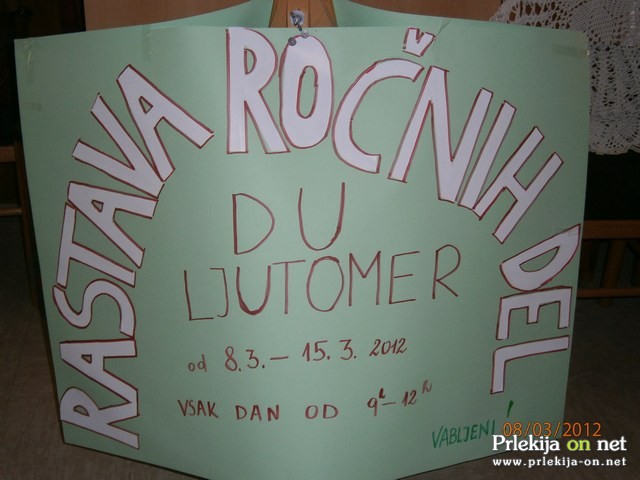 RASTAVA ROČNIH DEL
DU
LJUTOMER
od 8.3. – 15.3. 2012
VSAK DAN OD 9h – 12h
VABLJENI!
08/03/2012
Prlekija on net
www.prlekija-on.net